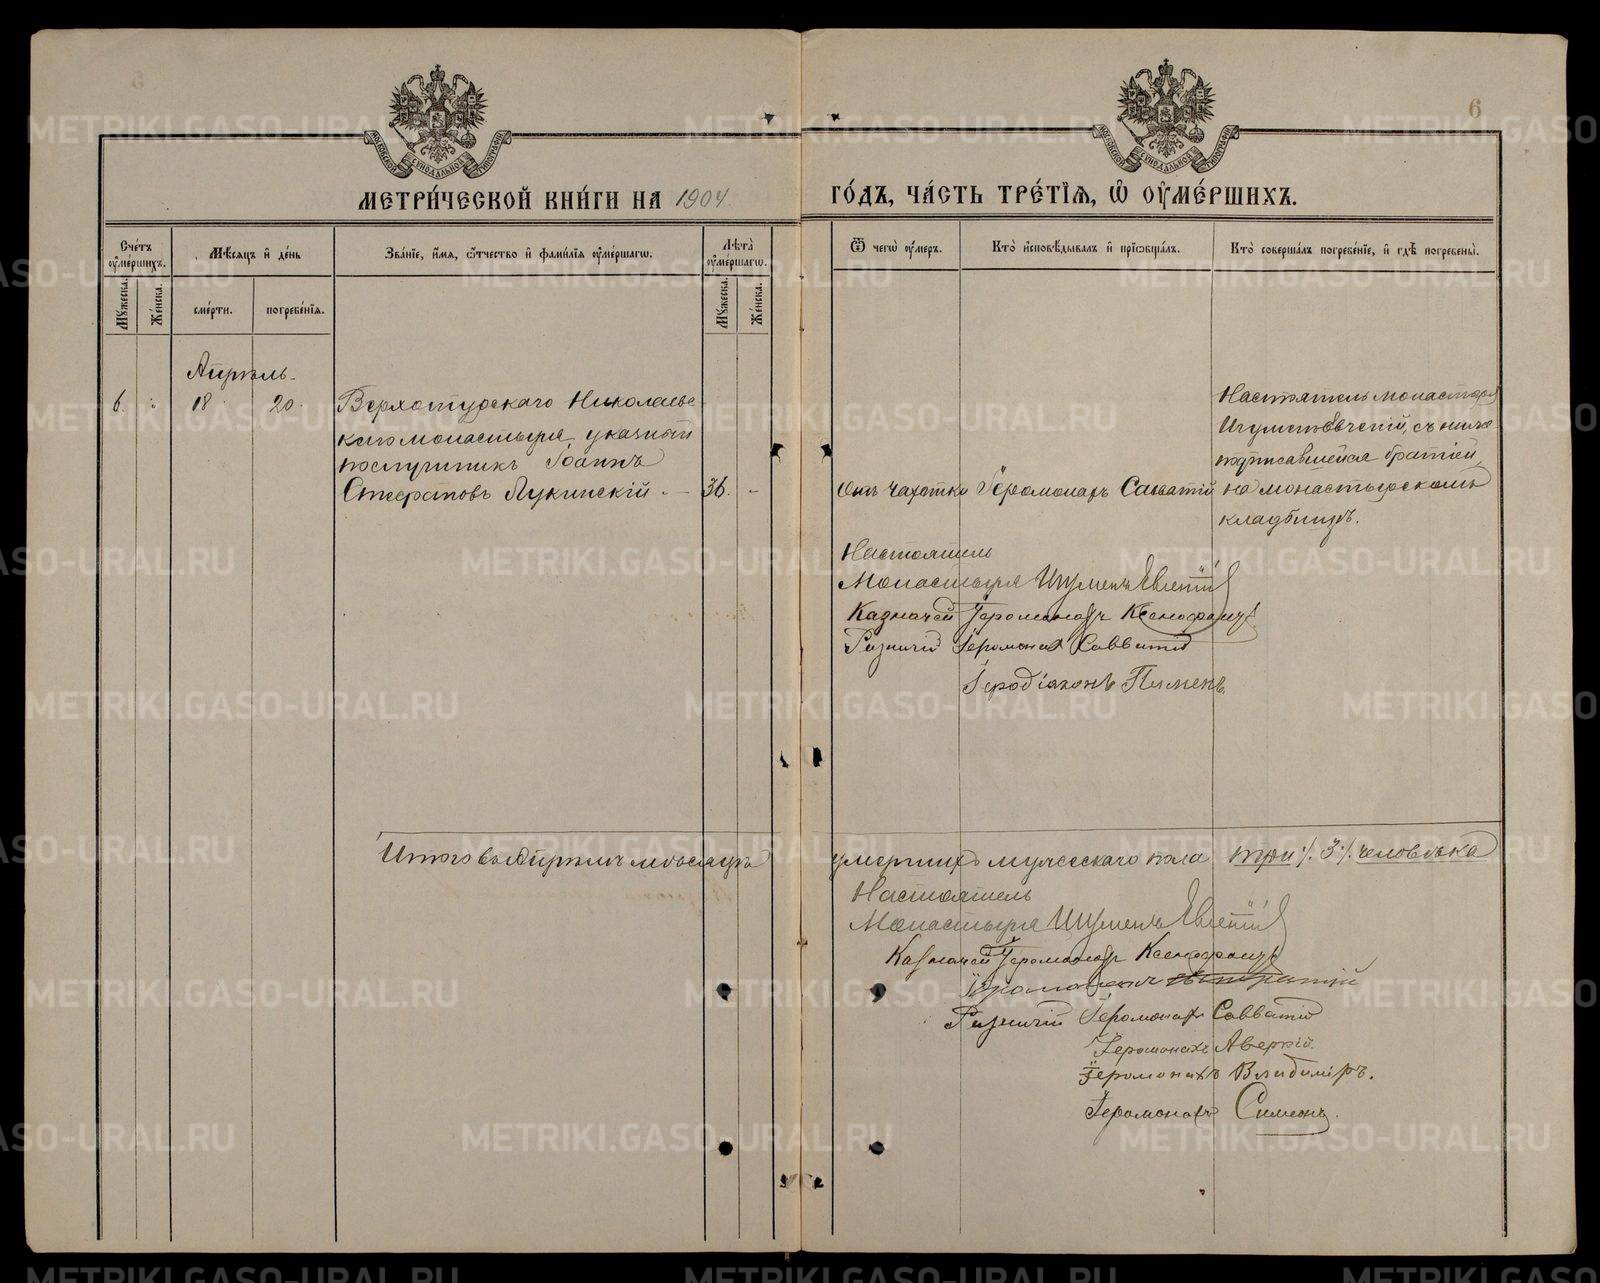 6
МЕТРИ́ЧЕСКОЙ КНИ́ГИ НА 1904
ГО́ДЪ, ЧА́СТЬ ТРЕ́ТІѦ, Ѡ҆ ОУ҆МЕ́РШИХЪ.
Сче́тъ оу҆ме́ршихъ.
Мꙋ́жеска.
Же́нска.
Мѣ́сяцъ и҆ де́нь
сме́рти.
погребе́нїѧ.
Зва́нїе, и҆́мѧ, ѻ҆́тчество и҆ фами́лїѧ оу҆ме́ршагѡ.
Лѣ́та оу҆ме́ршагѡ.
Мꙋ́жеска.
Же́нска.
Ѿ чегѡ̀ оу҆́меръ.
Кто̀ и҆сповѣ́дывалъ и҆ прїѡбща́лъ.
Кто̀ соверша́лъ погребе́нїе, и҆ гдѣ̀ погребены̀.
Апрѣль.
6. 18 20.
Верхотурскаго Николаевс
каго монастыря, указный
послушникъ Іоаннъ
Лукинскій. — 36. -
Отъ чахотки
Іеромонахъ Савватій
Настоятель монастыря
Игуменъ, съ ниже
подписавшейся братіей,
на монастырскомъ
кладбищѣ.
Настоятель
Монастыря Игуменъ
Казначей Іеромонахъ Ксенофонтъ
Ризничій Іеромонах Савватій
Іеродіаконъ Пименъ
Итого въ Апрѣлѣ мѣсяцѣ умершихъ мужескаго пола три ·/. 3 ·/. человѣка
Настоятель
Монастыря Игуменъ
Казначей Іеромонахъ Ксенофонтъ
Іеромонахъ
Ризничій Іеромонахъ Савватій
Іеромонахъ Аверкій.
Іеромонахъ Владиміръ.
Іеромонахъ Симеонъ.
METRIKI.GASO-URAL.RU